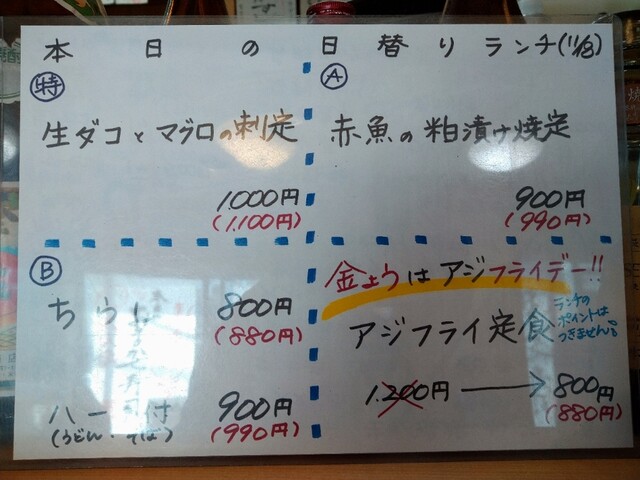 本日の日替りランチ(11/18)
特
生ダコとマグロの刺定
1.000円
(1.100円)
A
赤魚の粕漬け焼定
900円
(990円)
B
ちらし
800円
(880円)
ハーフ付
(うどん・そば)
900円
(990円)
金ようはアジフライデー!!
アジフライ定食
ランチの
ポイントは
つきません。
1.200円→800円
(880円)